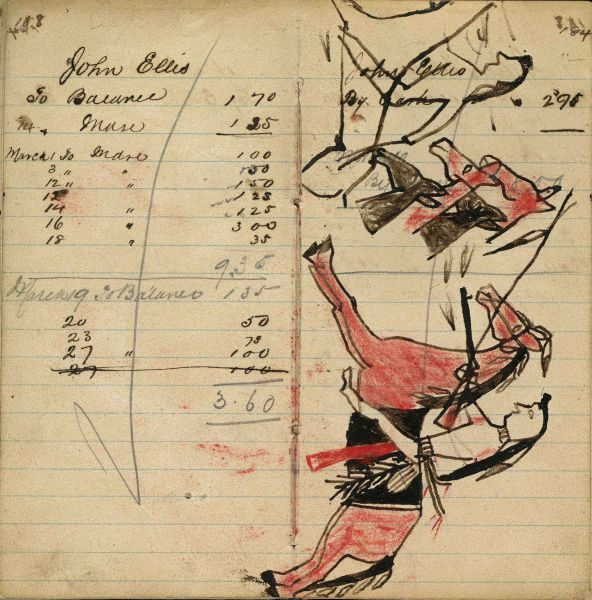 John Ellis
To Balance 1 70
14 " Mdse 1 25
March 1 To Mdse 1 00
3 " " 50
12 " " 1 50
12 " 1 25
14 " 1 25
16 " 3 00
18 " 35
9.35
March 19 To Balance 1 35
20 50
23 75
27 " 1 00
27 1 00
3.60
John Ellis
By Cash 2 95